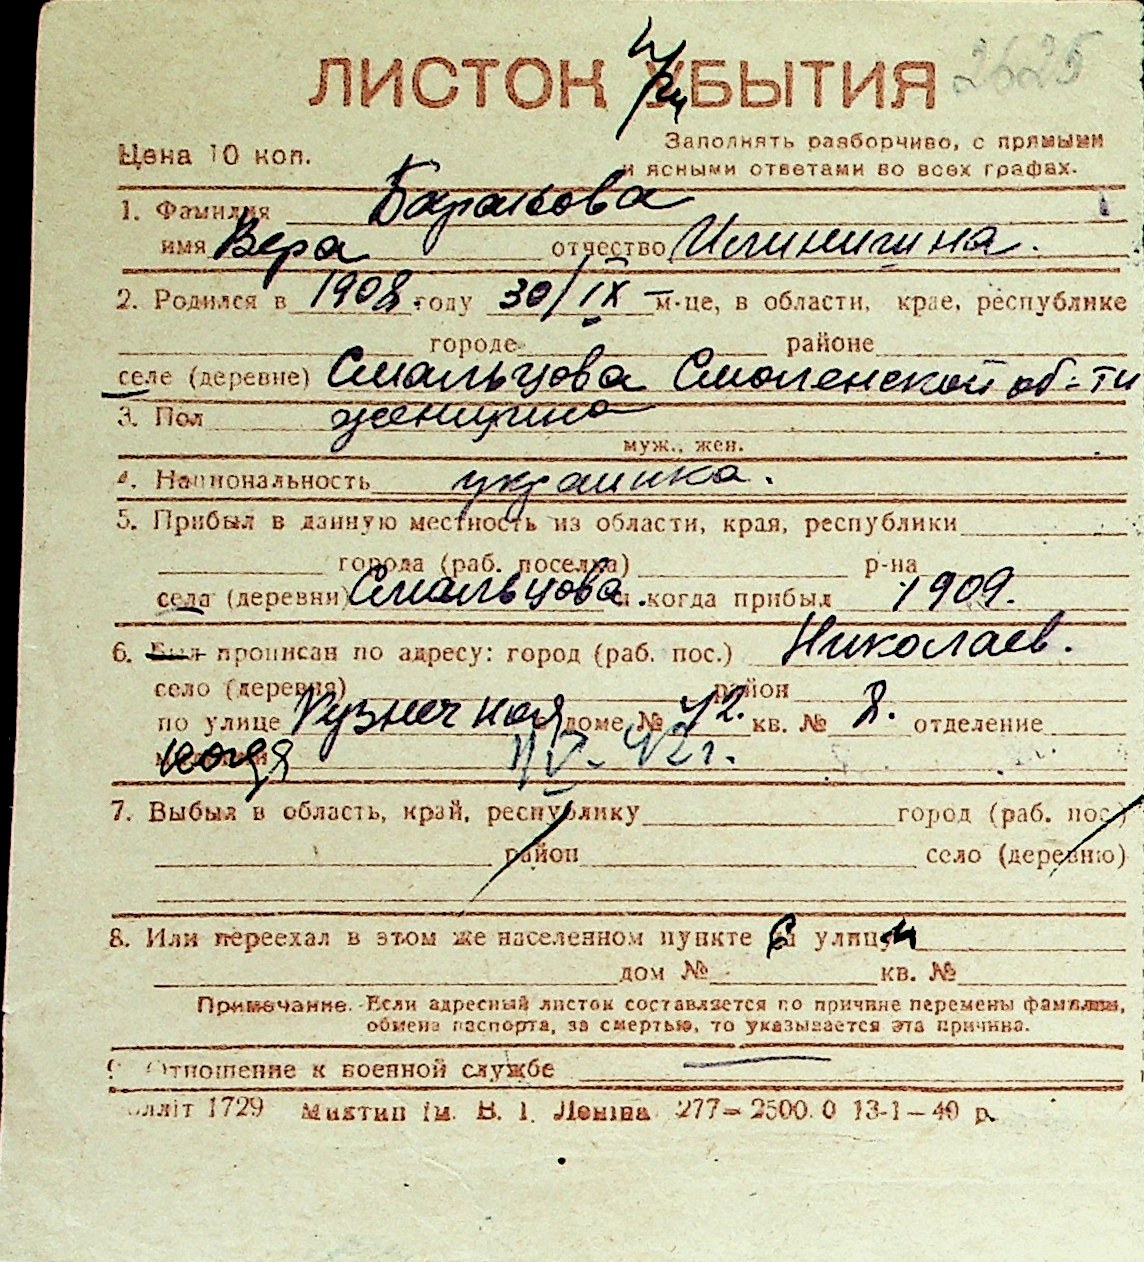 2625
ЛИСТОК УБЫТИЯ
Цена 10 коп.
Заполнять разборчиво, с прямыми
и ясными ответами во всех графах.
1. Фамилия Баракова
имя Вера отчество
2. Родился в 1908 году 30/IX м-це, в области, крае, республике
городе районе
селе (деревне) Смальцова Смоленской об-ти
3. Пол женщина
муж., жен.
4. Национальность украинка.
5. Прибыл в данную местность из области, края, республики
города (раб. поселка) р-на
села (деревни) Смальцова и когда прибыл 1909.
6. Был прописан по адресу: город (раб. пос.) Николаев.
село (деревня) район
по улице Кузнечная доме № 42. кв. № 2. отделение
когда 42 г.
7. Выбыл в область, край, республику город (раб. пос.)
район село (деревню)
8. Или переехал в этом же населенном пункте улицу
дом № кв. №
Примечание. Если адресный листок составляется по причине перемены фамилии,
обмена паспорта, за смертью, то указывается эта причина.
9. Отношение к военной службе
1729 Миктип ім. В. І. Леніна 277—2500.0 13-1—40 р.